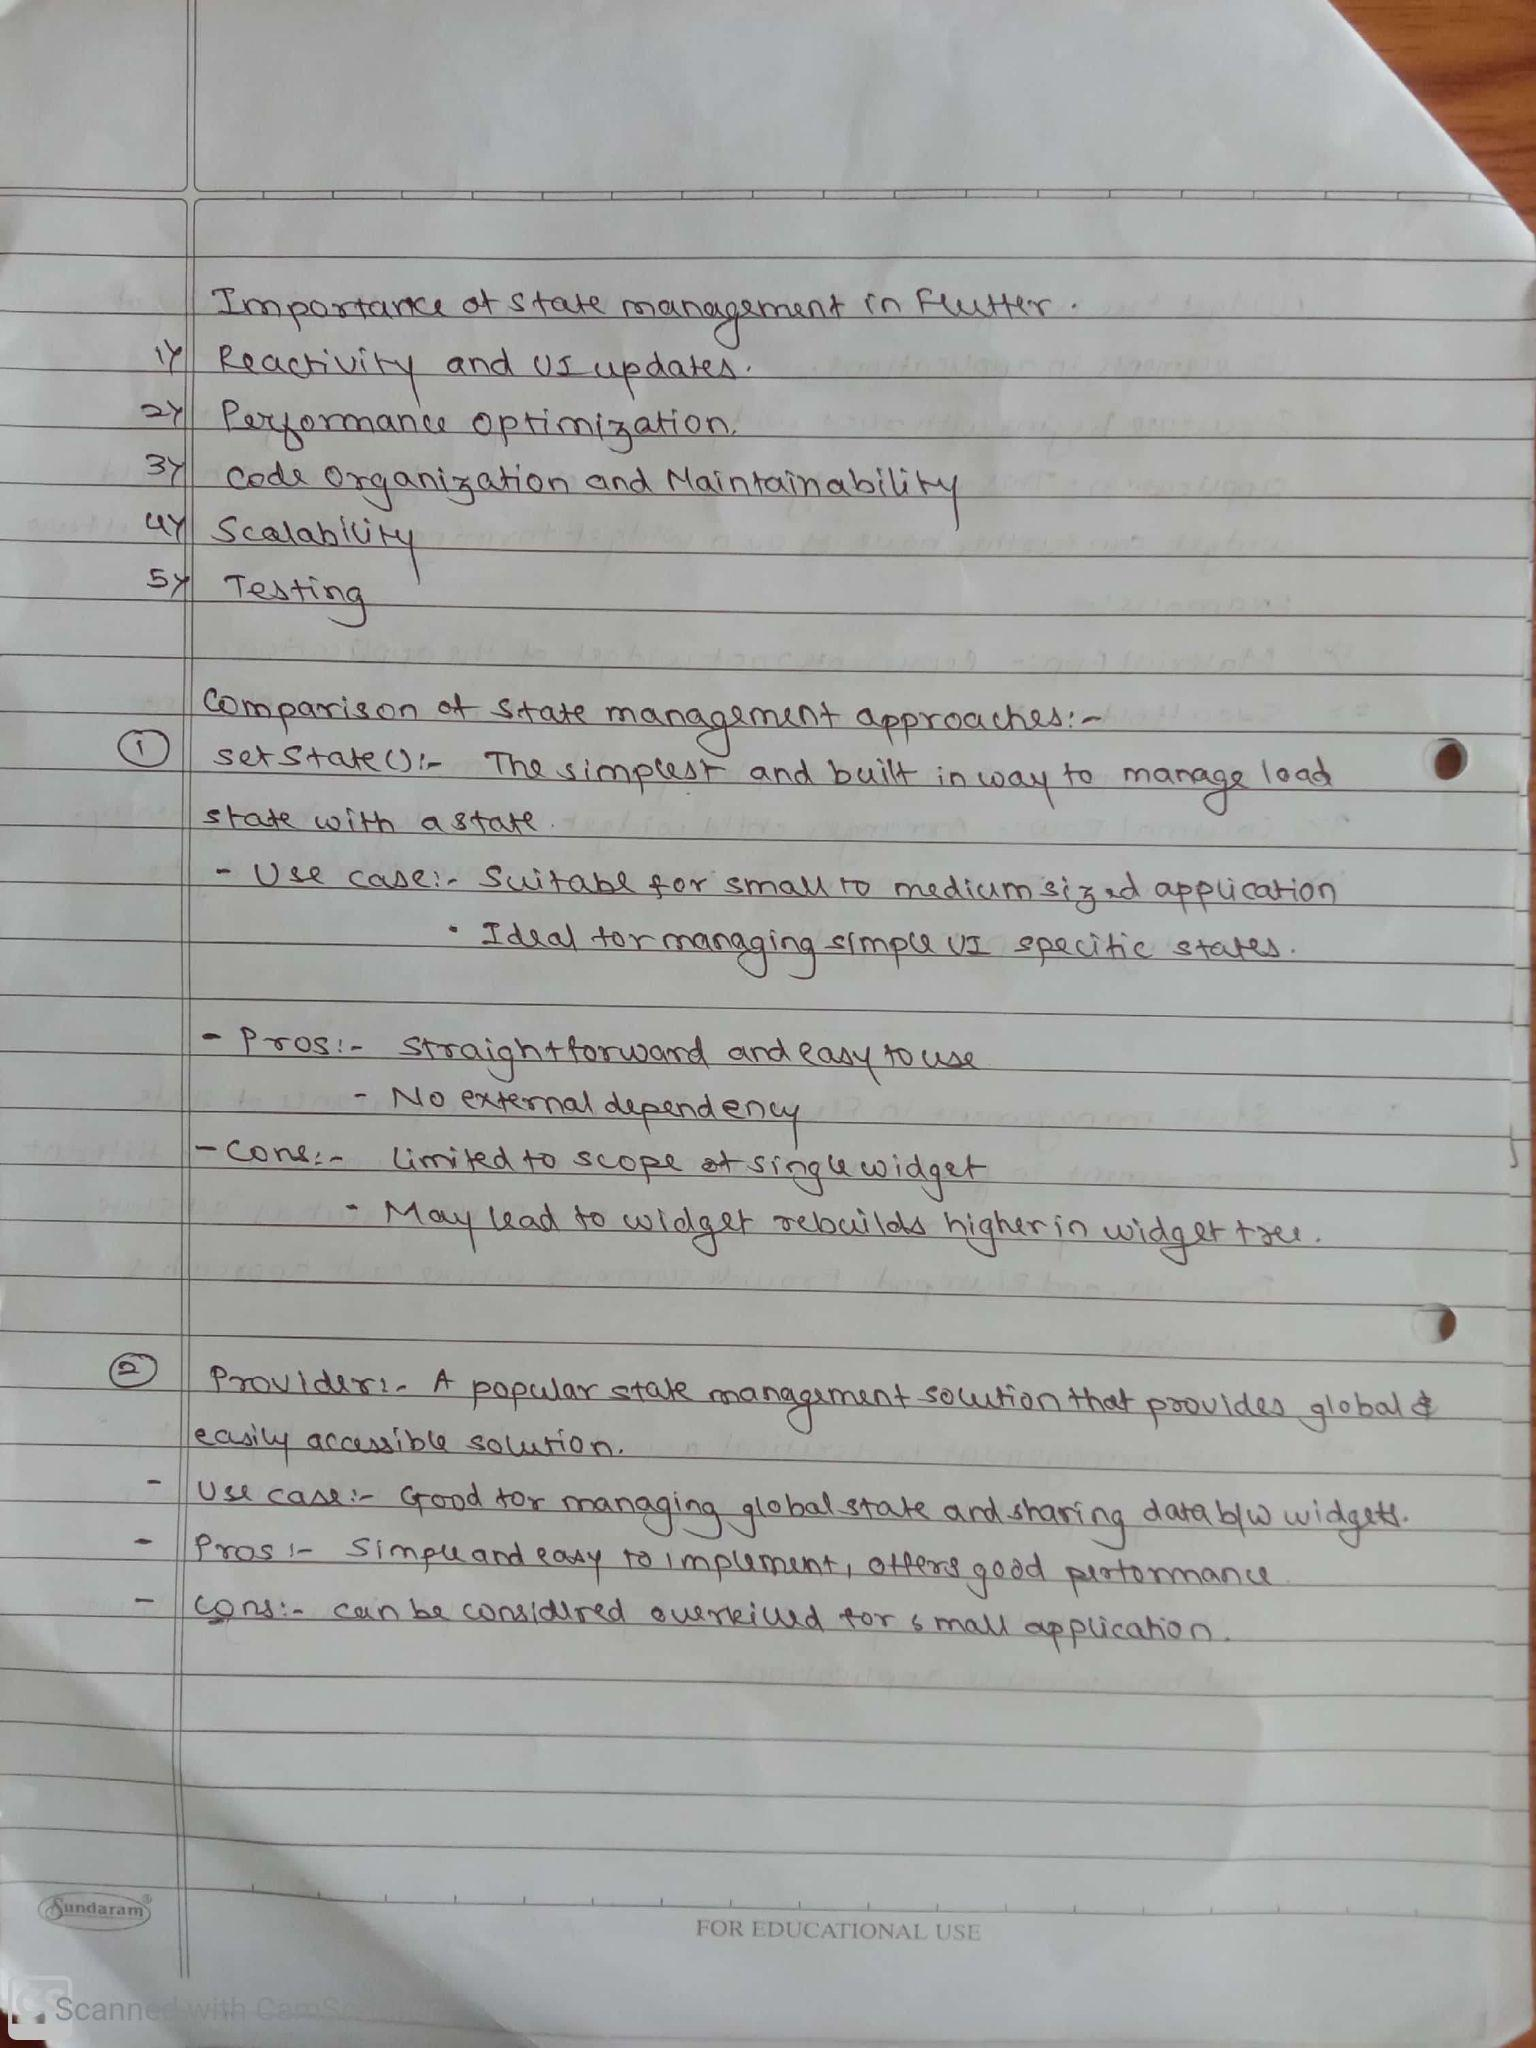 Importance of state management in Flutter.
1) Reactivity and UI updates.
2) Performance optimization.
3) Code Organization and Maintainability
4) Scalability
5) Testing
Comparison of state management approaches:-
① setState():- The simplest and built in way to manage load
state with a state.
- Use case:- Suitabe for small to medium sized application
• Ideal for managing simple UI specific states.
- Pros:- straightforward and easy to use
- No external dependency
- Cons:- Limited to scope of single widget
- May lead to widget rebuilds higher in widget tree.
② Provider:- A popular state management solution that provides global &
easily accessible solution.
- Use case:- Good for managing global state and sharing data b/w widgets.
- Pros:- Simple and easy to implement, offers good performance
- cons:- can be considered overkilled for small application.
Sundaram®
FOR EDUCATIONAL USE
CS Scanned with CamSc